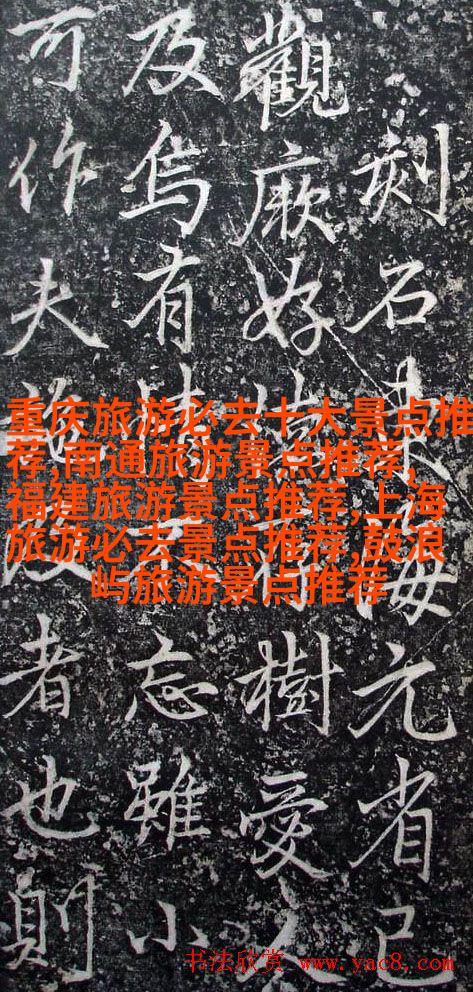 刻石東海元省已
觀厥好有樹愛
及烏有情不忘雖小
可作夫者也則
重庆旅游必去十大景点推
荐,南通旅游景点推荐,
福建旅游景点推荐,上海
旅游必去景点推荐,鼓浪
屿旅游景点推荐
书法欣赏 www.yac8.com